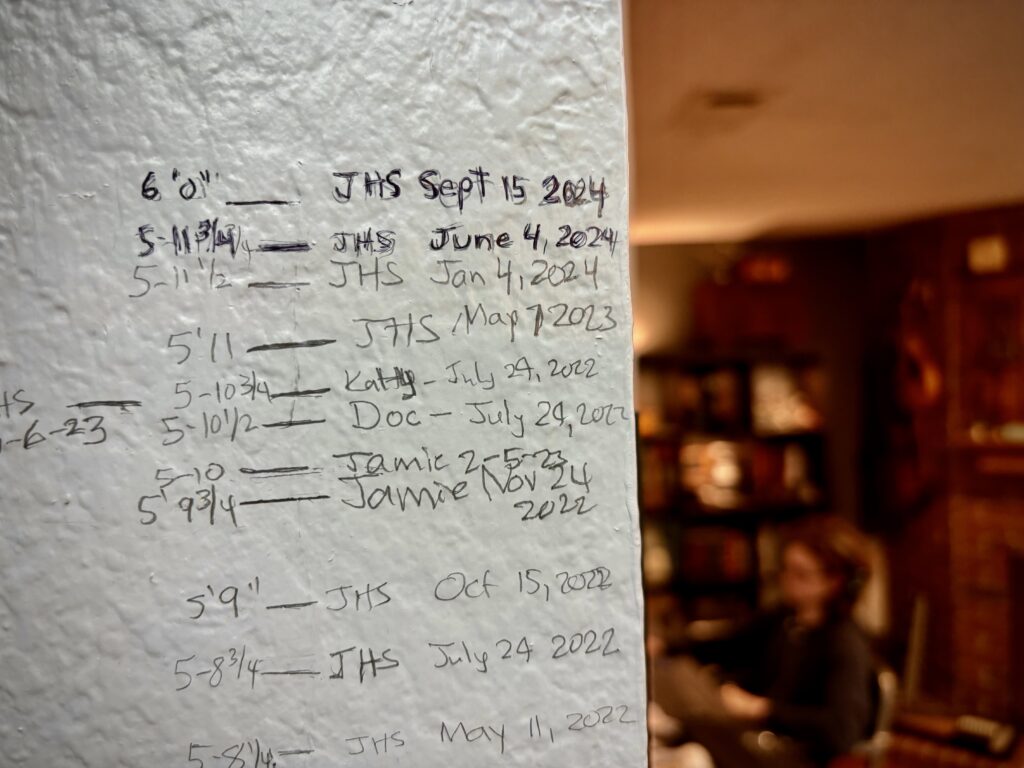 6'0" — JHS Sept 15 2024
5-11 3/4 — JHS June 4, 2024
5-11 1/2 — JHS Jan 4, 2024
5'11 — JHS May 7 2023
5-10 3/4 — Kathy - July 24, 2022
HS —
-6-23
5-10 1/2 — Doc - July 24, 2022
5-10 — Jamie 2-5-23
5' 9 3/4 — Jamie Nov 24
2022
5'9" — JHS Oct 15, 2022
5-8 3/4 — JHS July 24 2022
5-8 1/4 — JHS May 11, 2022